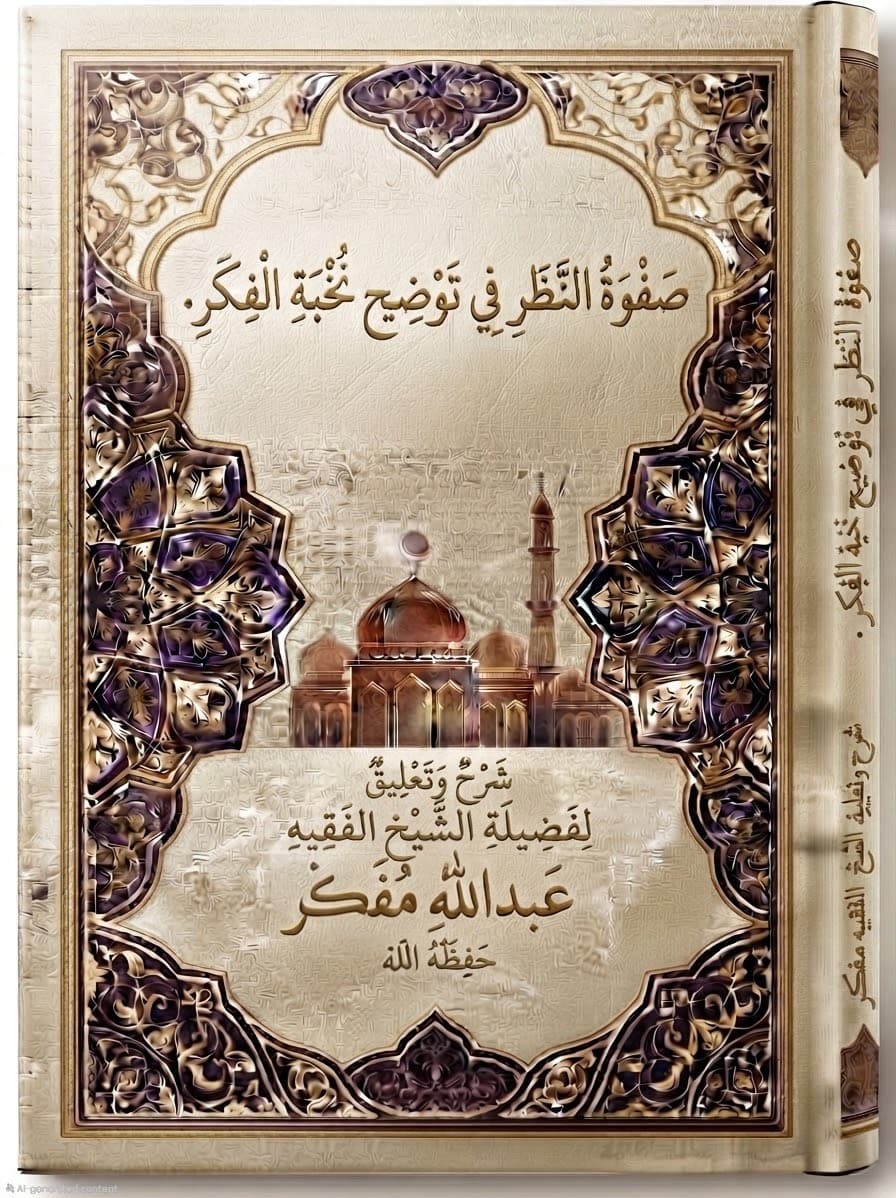 صَفْوَةُ النَّظَرِ فِي تَوْضِيحِ نُخْبَةِ الْفِكَرِ.
شَرْحٌ وَتَعْلِيقٌ
لِفَضِيلَةِ الشَّيْخِ الفَقِيهِ
عَبدالله مُفَكر
حَفِظَهُ اللّه
صفوة النظر في توضيح نخبة الفكر.
شرح وتعليق الشيخ الفقيه مفكر
AI-generated content